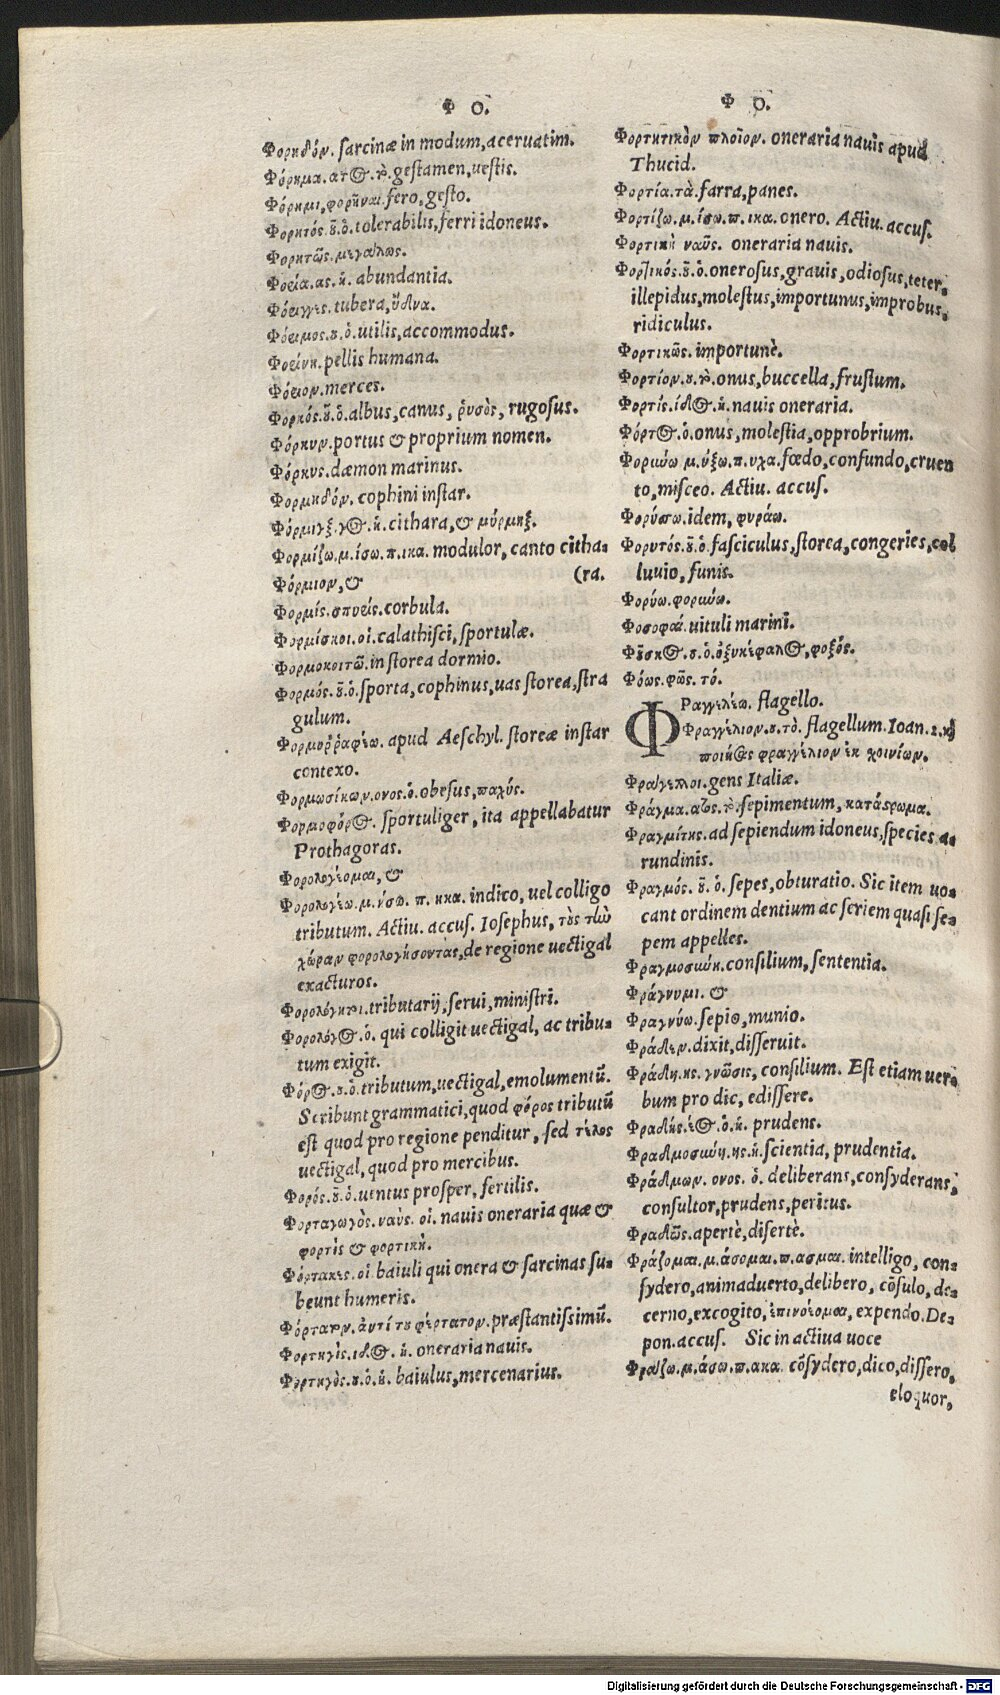 Φ Ο.
Φορηδόν. sarcinæ in modum, aceruatim.
Φόρημα. ατος. τὸ. gestamen, uestis.
Φόρημι, φορῆναι. fero, gesto.
Φορητός. οῦ. ὁ. tolerabilis, ferri idoneus.
Φορητῶς. μεγάλως.
Φορεία. ας. ἡ. abundantia.
tubera, ὕδνα.
Φόριμος. ου. ὁ. utilis, accommodus.
Φορίνη. pellis humana.
Φόριον. merces.
Φορκός. οῦ. ὁ. albus, canus, ῥυσὸς, rugosus.
Φόρκυν. portus & proprium nomen.
Φόρκυς. dæmon marinus.
Φορμηδόν. cophini instar.
Φόρμιγξ. γος. ἡ. cithara, & μύρμηξ.
Φορμίζω. μ. ίσω. π. ικα. modulor, canto citha-
Φόρμιον, & (ra.
Φορμίς. σπυρίς. corbula.
Φορμίσκοι. οἱ. calathisci, sportulæ.
Φορμοκοιτῶ. in storea dormio.
Φορμός. οῦ. ὁ. sporta, cophinus, uas storea, stra
gulum.
Φορμοῤῥαφέω. apud Aeschyl. storeæ instar
contexo.
Φορμωσίκων. ονος. ὁ. obesus, παχύς.
Φορμοφόρος. sportuliger, ita appellabatur
Prothagoras.
Φορολογέομαι, &
Φορολογέω. μ. ήσω. π. ηκα. indico, uel colligo
tributum. Actiu. accus. Iosephus, τοὺς τὴν
χώραν φορολογήσοντας, de regione uectigal
exacturos.
Φορολόγητοι. tributarij, serui, ministri.
Φορολόγος. ὁ. qui colligit uectigal, ac tribu-
tum exigit.
Φόρος. ου. ὁ. tributum, uectigal, emolumentū.
Scribunt grammatici, quod φόρος tributū
est quod pro regione penditur, sed τέλος
uectigal, quod pro mercibus.
Φορός. οῦ. ὁ. uentus prosper, fertilis.
Φορταγωγὸς. ναὺς. οἱ. nauis oneraria quæ &
φορτὶς & φορτική.
Φόρτακες. οἱ. baiuli qui onera & sarcinas su-
beunt humeris.
Φόρτατον. ἀντὶ τοῦ φέρτατον. præstantissimū.
Φορτηγὶς. ιδος. ἡ. oneraria nauis.
Φορτηγὸς. ου. ὁ. ἡ. baiulus, mercenarius.
Φ Ο.
Φορτητικὸν πλοῖον. oneraria nauis apud
Thucid.
Φορτία. τὰ. farra, panes.
Φορτίζω. μ. ίσω. π. ικα. onero. Actiu. accus.
Φορτικὴ ναῦς. oneraria nauis.
Φορτικός. οῦ. ὁ. onerosus, grauis, odiosus, teter,
illepidus, molestus, importunus, improbus,
ridiculus.
Φορτικῶς. importunè.
Φορτίον. ου. τὸ. onus, buccella, frustum.
Φορτίς. ίδος. ἡ. nauis oneraria.
Φόρτος. ὁ. onus, molestia, opprobrium.
Φορύνω μ. ύξω. π. υχα. fœdo, confundo, cruen
to, misceo. Actiu. accus.
Φορύσσω. idem, φυράω.
Φορυτός. οῦ. ὁ. fasciculus, storea, congeries, col
luuio, funis.
Φορύω. φορύνω.
uituli marini.
Φοῦσκος. ου. ὁ. ὀξυκέφαλος, φοξός.
Φόως. φῶς. τό.
ΦΡαγγελέω. flagello.
Φραγγέλιον. ου. τὸ. flagellum. Ioan. 2. κὶ
ποιήσας φραγγέλιον ἐκ χοινίων.
Φράγελλοι. gens Italiæ.
Φράγμα. ατος. τὸ. sepimentum, κατάστρωμα.
Φραγμίτης. ad sepiendum idoneus, species a-
rundinis.
Φραγμός. οῦ. ὁ. sepes, obturatio. Sic item uo-
cant ordinem dentium ac seriem quasi se-
pem appelles.
Φραγμοσύνη. consilium, sententia.
Φράγνυμι. &
Φραγνύω. sepio, munio.
Φράδεν. dixit, disseruit.
Φράδη. ης. γνῶσις, consilium. Est etiam uer-
bum pro dic, edissere.
Φραδής. έος. ὁ. ἡ. prudens.
Φραδμοσύνη. ης. ἡ. scientia, prudentia.
Φράδμων. ονος. ὁ. deliberans, consyderans,
consultor, prudens, peritus.
Φραδῶς. apertè, disertè.
Φράζομαι. μ. άσομαι. π. ασμαι. intelligo, con-
sydero, animaduerto, delibero, cōsulo, de-
cerno, excogito, ἐπινοέομαι, expendo. De-
pon. accus. Sic in actiua uoce
Φράζω. μ. άσω. π. ακα. cōsydero, dico, dissero,
eloquor,
Digitalisierung gefördert durch die Deutsche Forschungsgemeinschaft - DFG